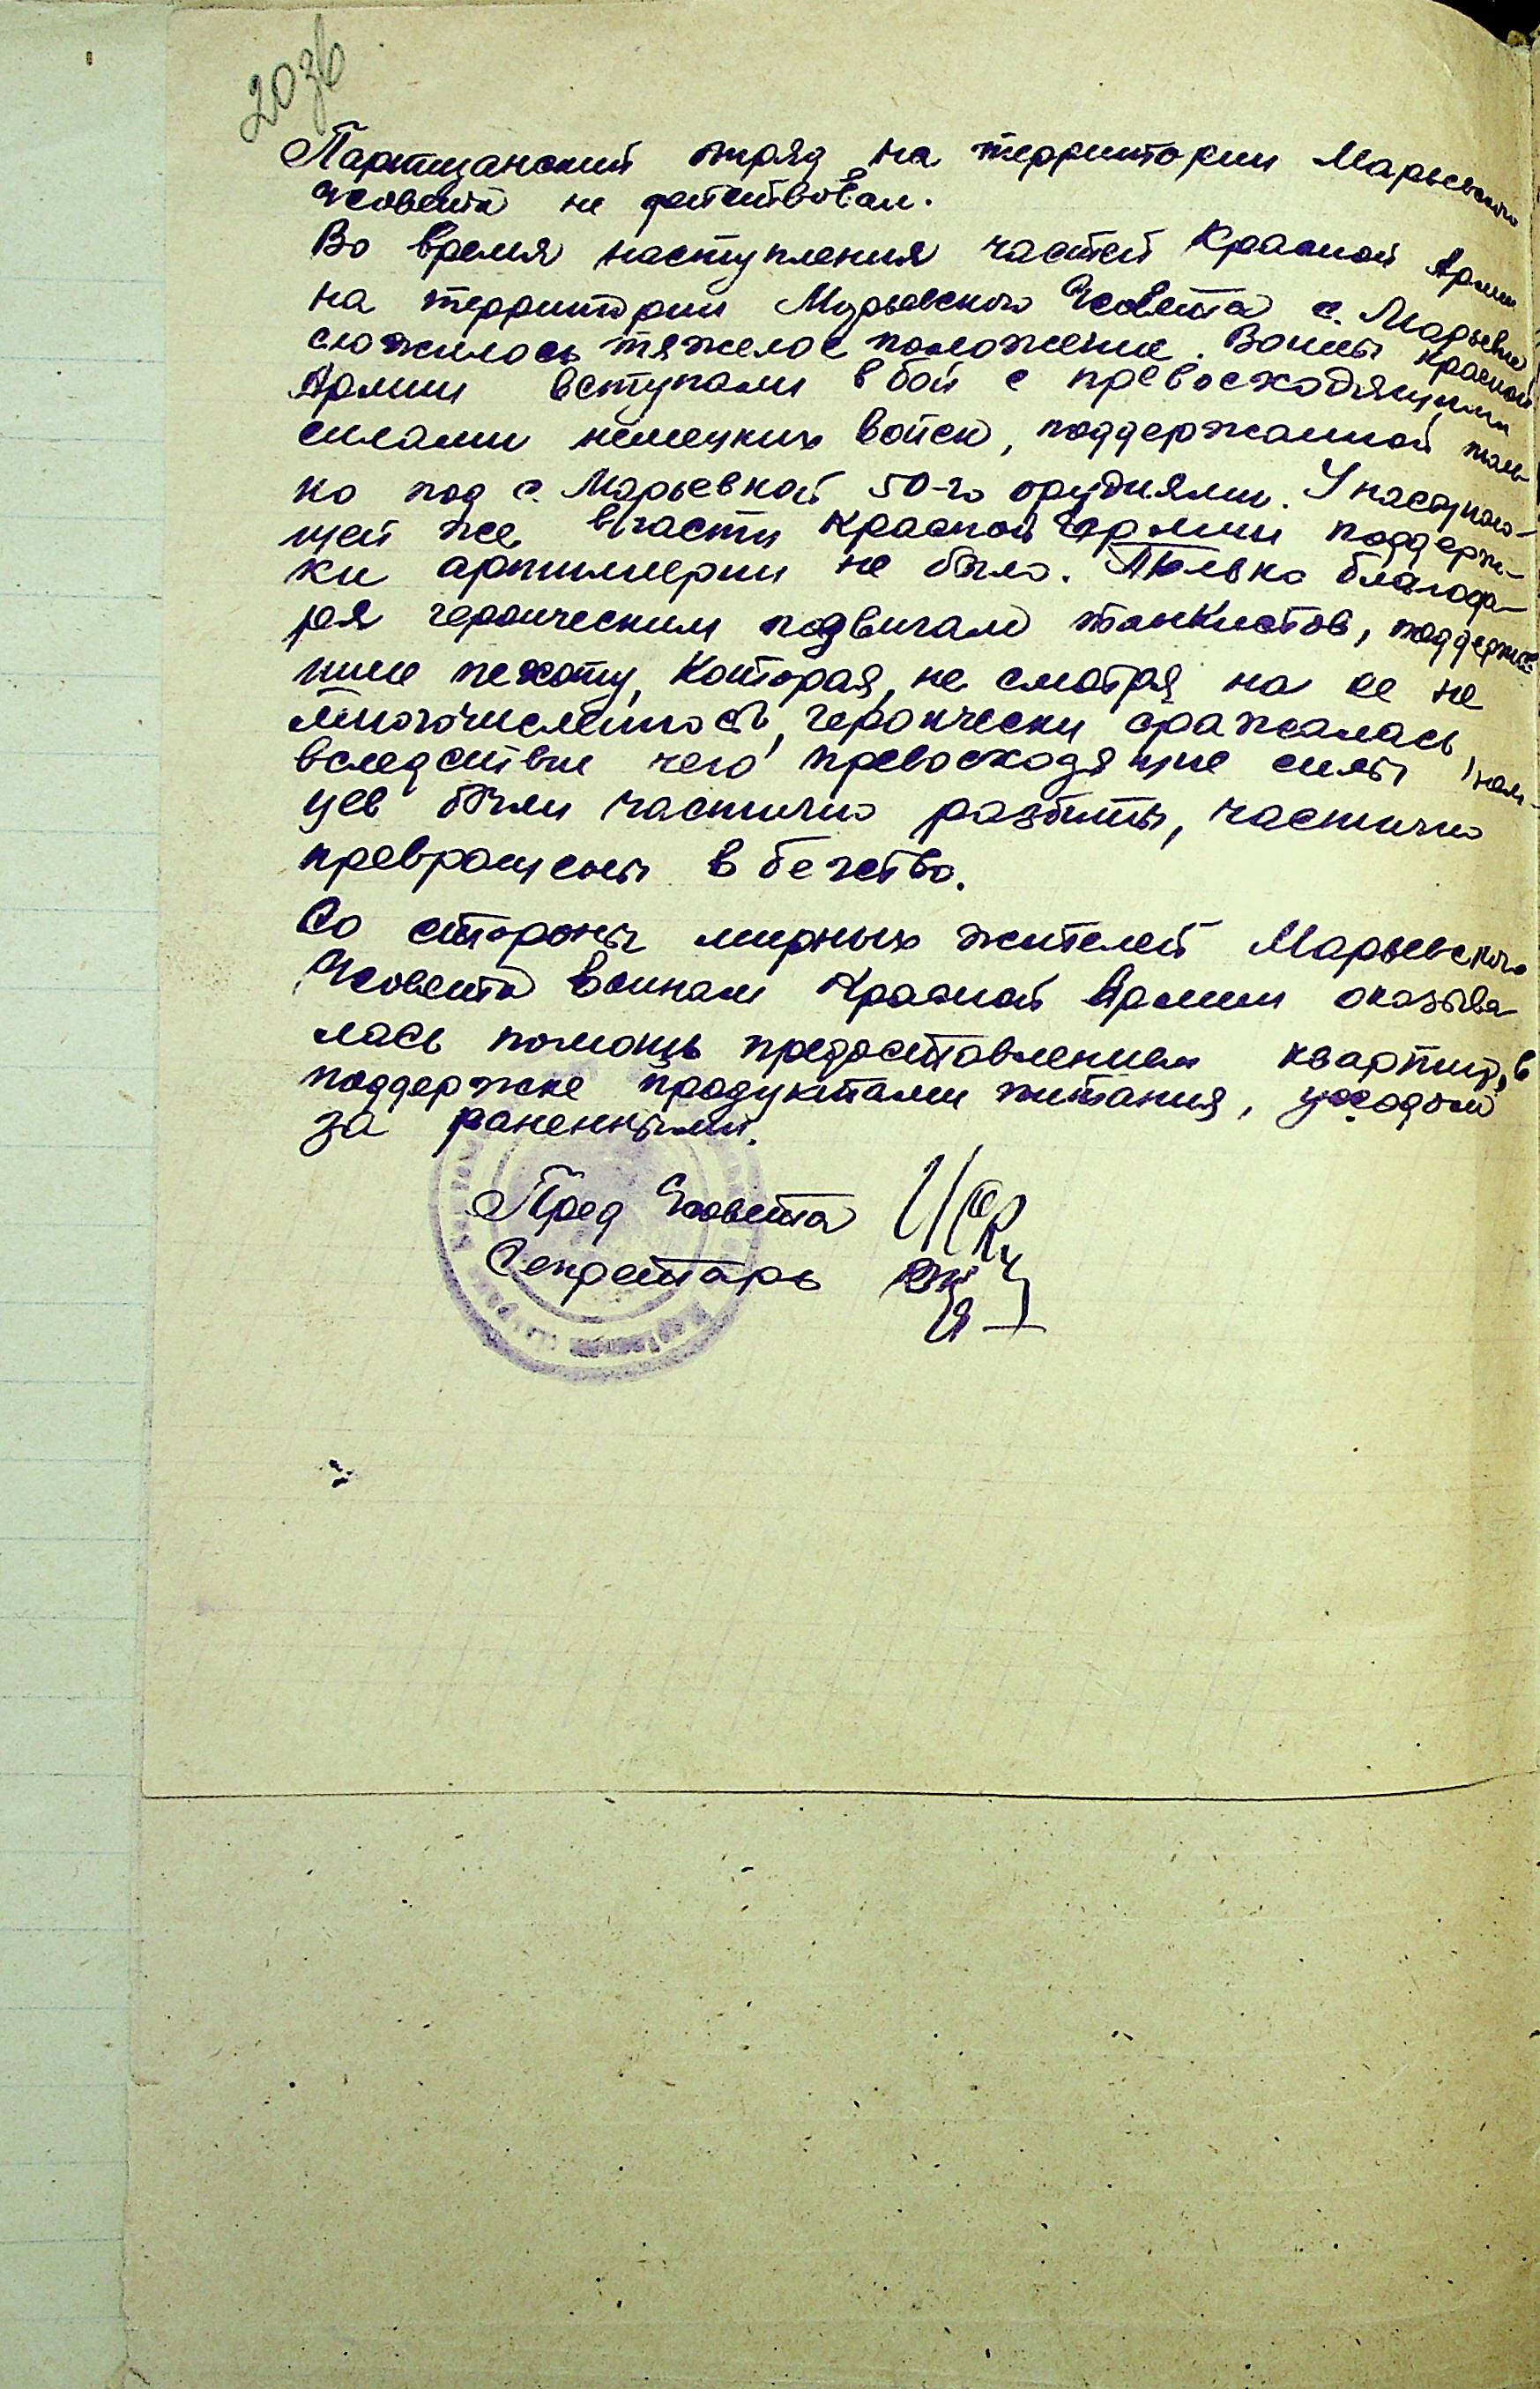 203б
Партизанский отряд на территории Марьевского
с/совета не действовал.
Во время наступления частей Красной Армии
на территории Марьевского с/совета с. Марьевке
сложилось тяжелое положение. Воины Красной
Армии вступали в бой с превосходящими
силами немецких войск, поддержанной толь-
ко под с. Марьевкой 50-ю орудиями. У наступаю-
щей же части Красной Армии поддерж-
ки артиллерии не было. Только благода-
ря героическим подвигам танкистов, поддержав
шие пехоту, которая, не смотря на ее не
многочисленность, героически сражалась,
вследствие чего превосходящие силы нем-
цев были частично разбиты, частично
превращены в бегство.
Со стороны мирных жителей Марьевского
с/совета воинам Красной Армии оказыва
лась помощь предоставлением квартир, в
поддержке продуктами питания, уходом
за раненными.
Пред с/совета
Секретарь